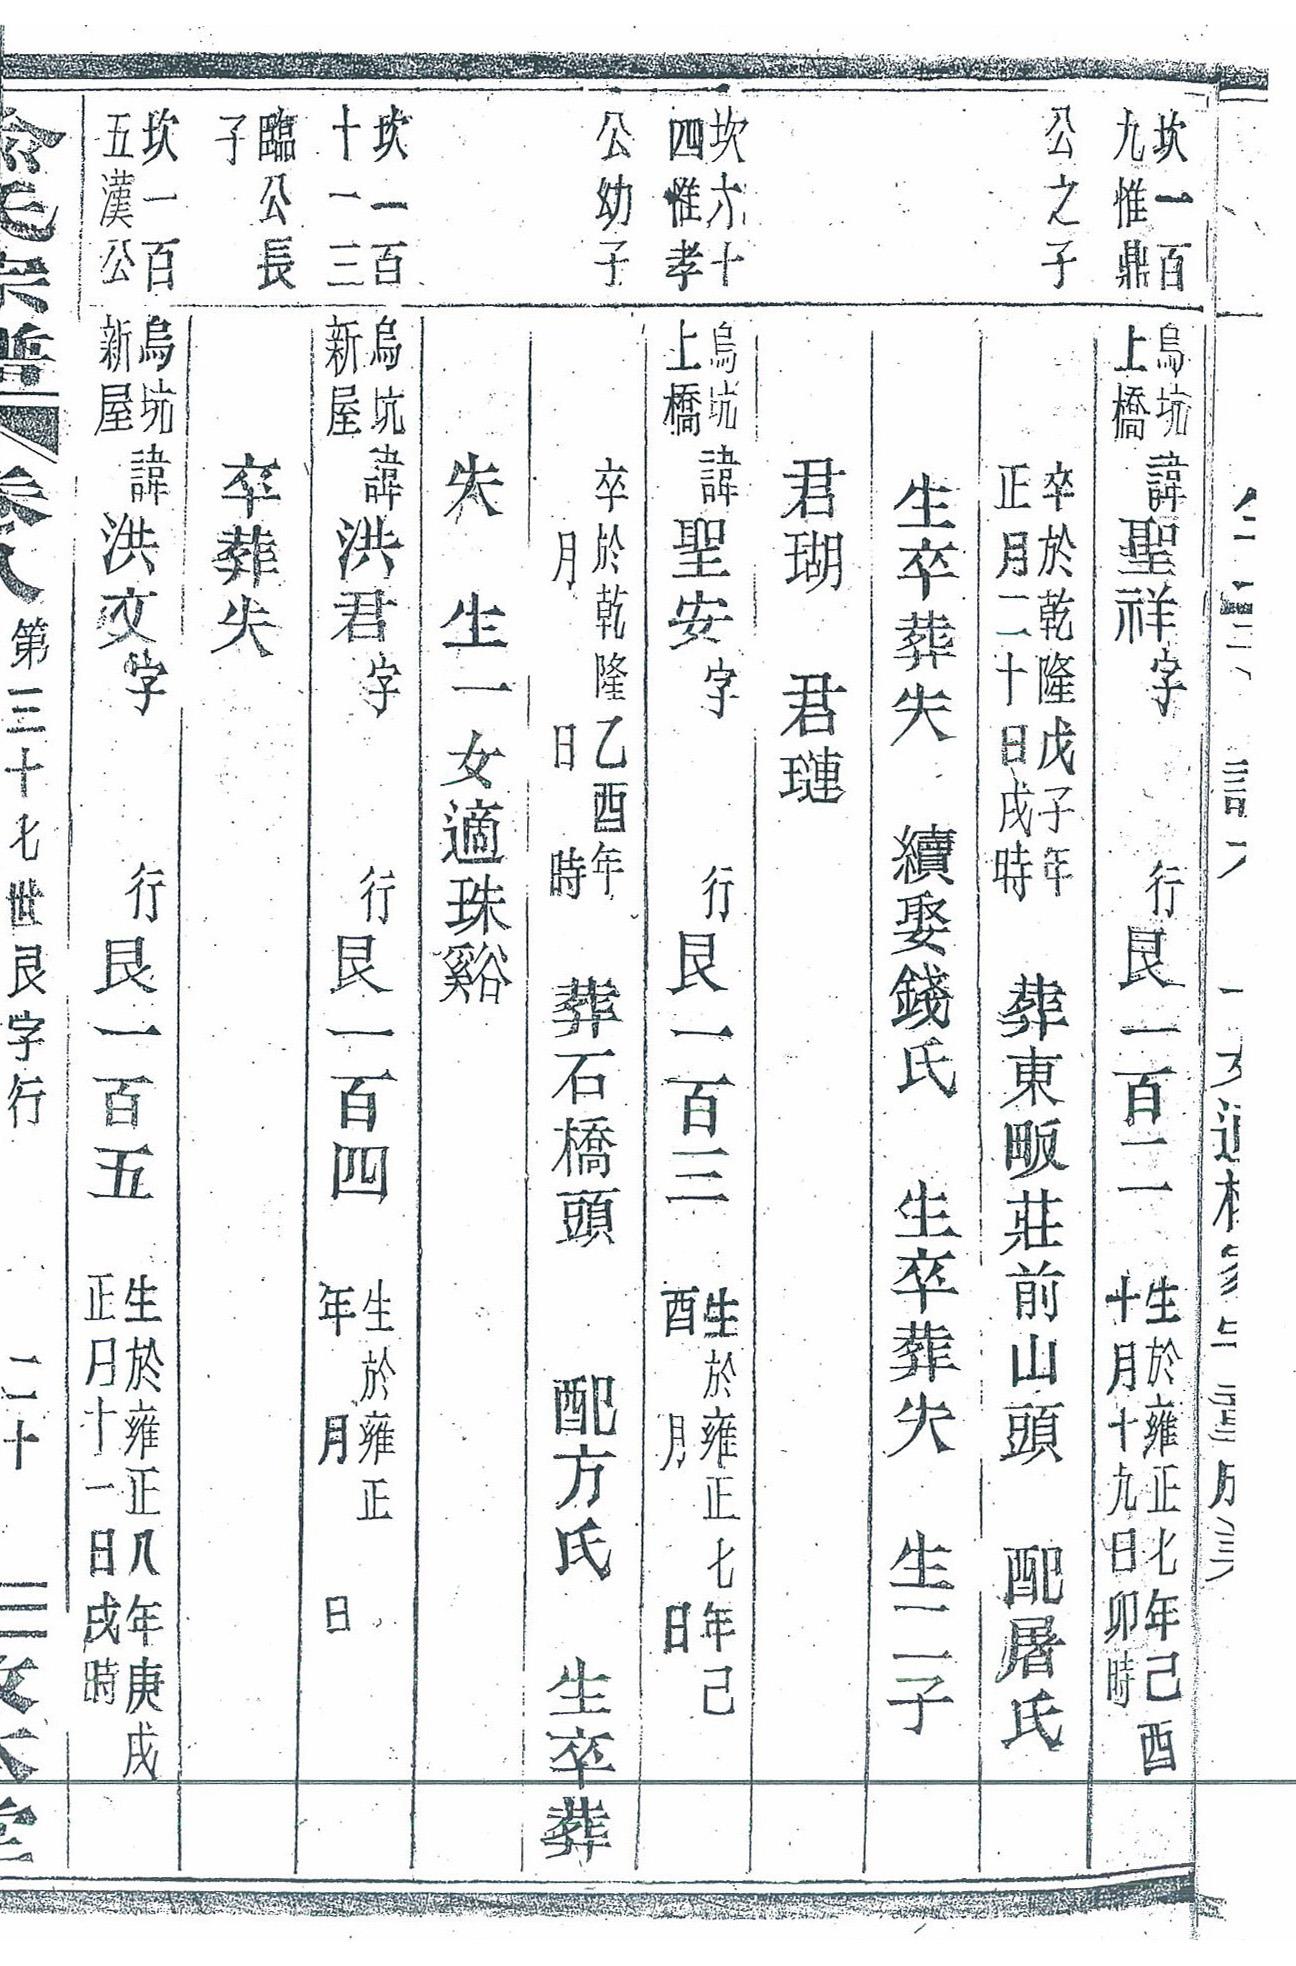 坎一百
九惟鼎
烏坑
上橋
諱聖祥字
行艮一百二
生於雍正七年己酉
十月十九日卯時
公之子
卒於乾隆戊子年
正月二十日戌時
葬東畈莊前山頭 配屠氏
生卒葬失 續娶錢氏 生卒葬失 生二子
君瑚 君璉
坎六十
四惟孝
烏坑
上橋
諱聖安字
行艮一百三
生於雍正七年己
酉 月 日
公幼子
卒於乾隆乙酉年
月 日 時
葬石橋頭 配方氏 生卒葬
失 生一女適珠谿
坎一百
十一三
烏坑
新屋
諱洪君字
行艮一百四
生於雍正
年 月 日
臨公長
子
卒葬失
坎一百
五漢公
烏坑
新屋
諱洪文字
行艮一百五
生於雍正八年庚戌
正月十一日戌時
氏宗譜 卷八 第三十七世艮字行 二十 敦本堂